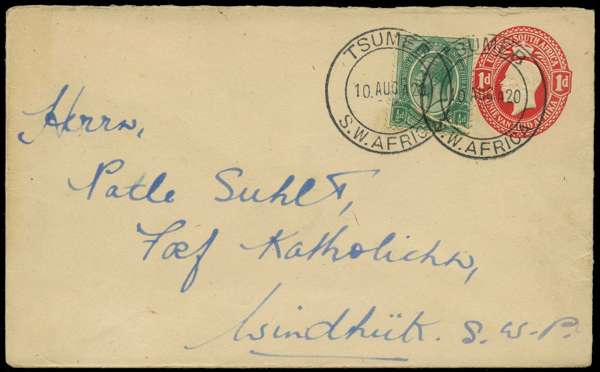 TSUMEB
10 AUG 20
S.W. AFRICA
TSUMEB
10 AUG 20
S.W. AFRICA
½d ½d
SOUTH AFRICA
1d 1d
UNIE VAN ZUID AFRIKA
Herrn,
Patle Suhlt,
Katholichn,
Windhük. S. W. P.